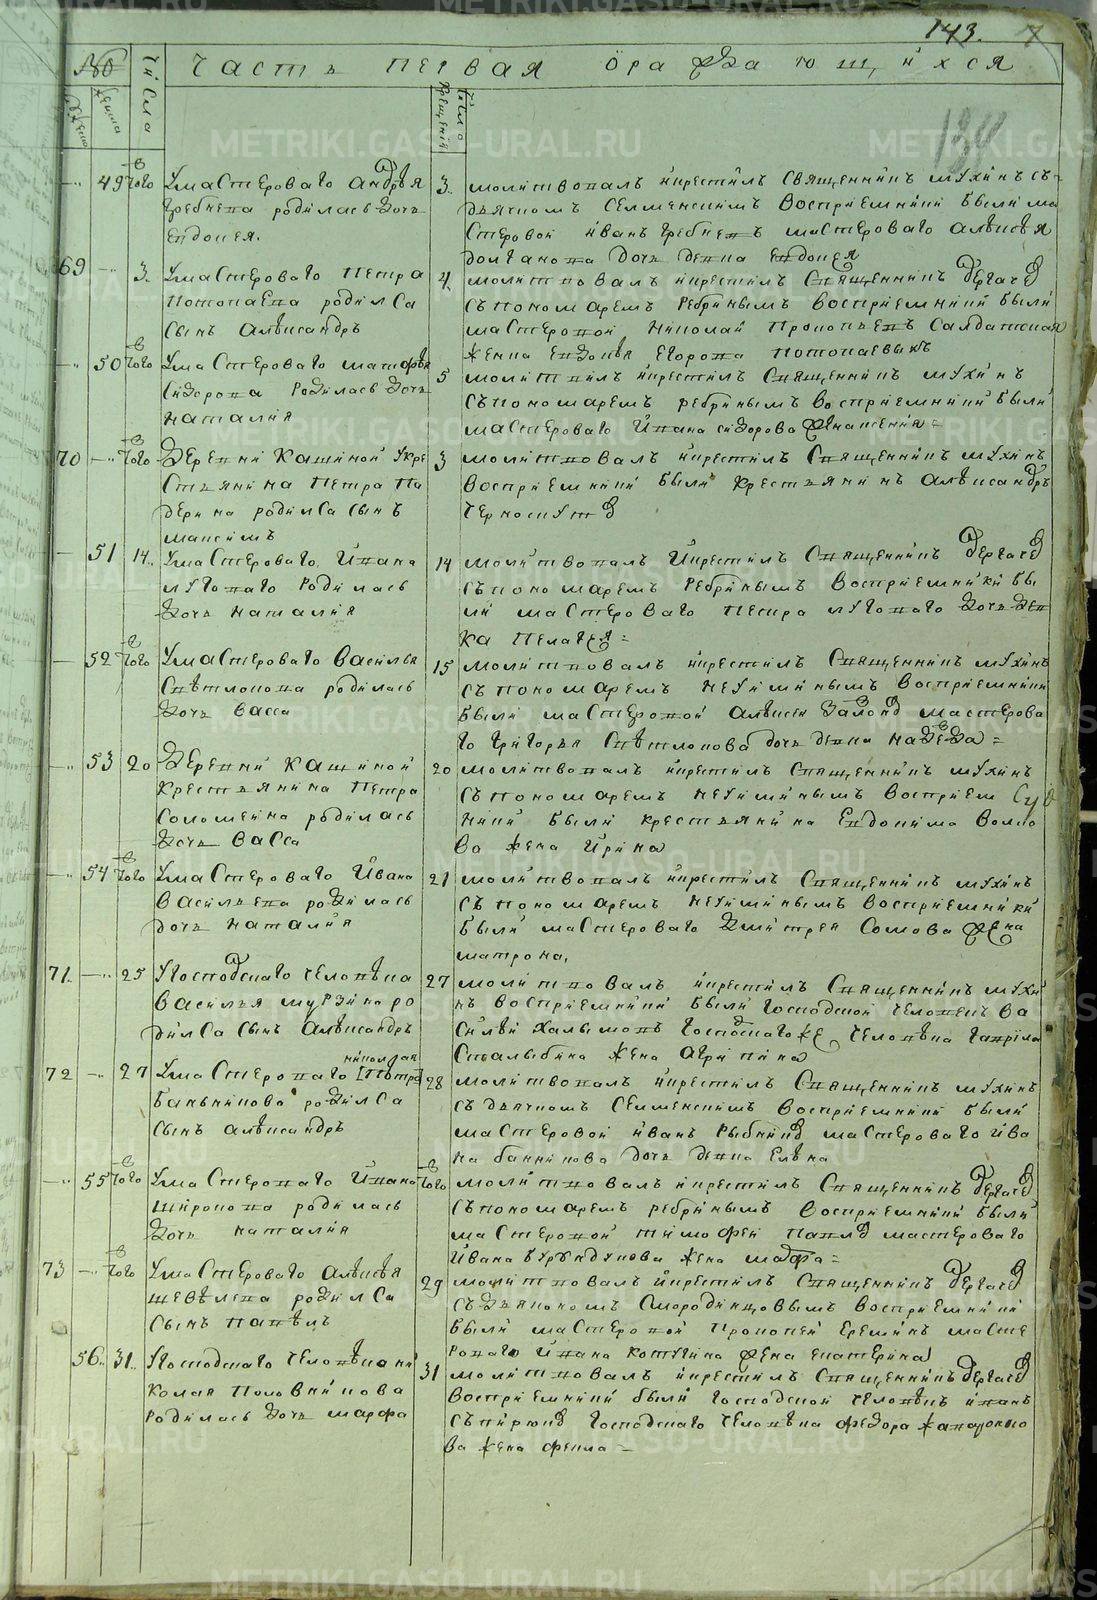 143. 7
130
№ Числа Часть первая ѡраждающихся
Число крещения
49 Того У мастероваго андрѣя
Гребнева родилась дочь
Евдокея.
3. молитвовалъ и крестилъ Священникъ мухинъ съ
дьячкомъ Селменскимъ Восприемники были ма
стеровой иванъ Гребневъ мастероваго алѣксѣя
долганова дочь девка Евдокея
69 3. У мастероваго петра
потопаева родилса
Сынъ алѣксандръ
4 молитвовалъ и крестилъ Священникъ дергачевъ
Съ пономаремъ ребринымъ Восприемники были
мастеровой николай прокопьевъ Салдатская
жена Евдокѣя Егорова потопаевыхъ
50 Того У мастероваго матфѣя
Сидорова родилась дочь
наталия
5 молитвилъ и крестилъ Священникъ мухинъ
Съ пономаремъ ребринымъ Восприемники были
мастероваго ивана сидорова
70 Того Деревни кашиной у кре
Стьянина петра па
дерина родилса Сынъ
максимъ
3 молитвовалъ и крестилъ Священникъ мухинъ
Восприемники были крестьянинъ алѣксандръ
Черноскутовъ
51 14. У мастероваго ивана
лугова​го родилась
дочь наталия
14 молитвовалъ и крестилъ Священникъ дергачевъ
Съ пономаремъ ребринымъ Восприемники бы
ли мастероваго петра луговаго дочь дев
ка пелагея =
52 Того У мастероваго Василья
Свѣтлокова родилась
дочь Васса
15 молитвовалъ и крестилъ Священникъ мухинъ
Съ пономаремъ неуйминымъ Восприемники
были мастеровой алѣксей мастерова
го григорья дочь девка надежда =
53 20 Деревни кашиной
крестьянина петра
Соломеина родилась
дочь Васса
20 молитвовалъ и крестилъ Священникъ мухинъ
Съ пономаремъ неуйминымъ Восприем
ники были крестьянина Евдокима Волко
ва жена ирина
54 Того У мастероваго ивана
Васильева родилась
дочь наталия
21 молитвовалъ и крестилъ Священникъ мухинъ
Съ пономаремъ неуйминымъ Восприемники
были мастероваго дмитрея Сомова жена
матрона.
71. 25 У господскаго человѣка
Василья мурзина ро
дилса Сынъ алѣксандръ
27 молитвовалъ и крестилъ Священникъ мухи
нъ Восприемники были господской человекъ Ва
силѣй господскаго же человѣка гаврила
жена агрипина
николая
72 27 У мастероваго [петра]
банникова родилса
Сынъ алѣксандръ
28 молитвовалъ и крестилъ Священникъ мухинъ
Съ дьячкомъ Селменскимъ Восприемники были
мастеровой иванъ рыбниковъ мастероваго ива
на банникова дочь девка Елѣна
55 Того У мастероваго ивана
широкова родилась
дочь наталия
Того молитвовалъ и крестилъ Священникъ дергачевъ
Съ пономаремъ ребринымъ Восприемники были
мастеровой тимофей павловъ мастероваго
ивана бурундукова жена марфа =
73 Того У мастероваго алѣксѣя
шевѣлева родилса
Сынъ павѣлъ
29 молитвовалъ и крестилъ Священникъ дергачевъ
Съ дьякономъ Смородинцовымъ Восприемники
были мастеровой прокопей Ереминъ масте
роваго ивана котугина жена екатерина
56. 31. У господскаго человѣка ни
колая половникова
родилась дочь марфа
31 молитвовалъ и крестилъ Священникъ дергачевъ
Восприемники были господской человѣкъ иванъ
господскаго человѣка федора
ва жена фекла =